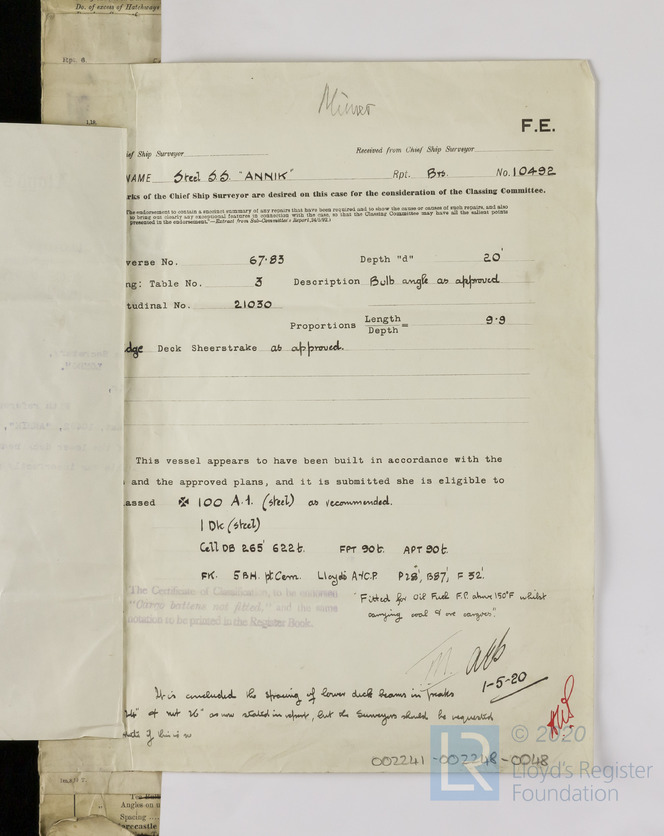 Do. of excess of Hatchways
F.E.
ief Ship Surveyor
Received from Chief Ship Surveyor
NAME Steel SS. "ANNIK" Rpt. Brs. No. 10492
rks of the Chief Ship Surveyor are desired on this case for the consideration of the Classing Committee.
The endorsement to contain a succinct summary of any repairs that have been required and to show the cause or causes of such repairs, and also
to bring out clearly any exceptional features in connection with the case, so that the Classing Committee may have all the salient points
presented in the endorsement."—Extract from Sub-Committee's Report,
verse No. 67.83 Depth "d" 20'
ng: Table No. 3 Description Bulb angle as approved
tudinal No. 21030
Proportions Length/Depth = 9.9
dge Deck Sheerstrake as approved.
This vessel appears to have been built in accordance with the
and the approved plans, and it is submitted she is eligible to
assed ✠ 100 A.1. (steel) as recommended.
1 Dk (steel)
Cell DB 265' 622t. FPT 90t. APT 90t.
FK. 5BH. pt Cem. Lloyd's A&CP. P28', B87', F 32'.
"The Certificate of Classification, to be endorsed
"Cargo battens not fitted," and the same
notation to be printed in the Register Book.
"Fitted for Oil Fuel F.P. above 150°F whilst
carrying coal & ore cargoes".
1-5-20
It is concluded the spacing of lower deck beams in peaks
24" & not 26" as now stated in report, but the Surveyors should be requested
state if this is so
002241-002248-0048
LR
© 2020
Lloyd's Register
Foundation
Angles on u
Spacing
orecastle